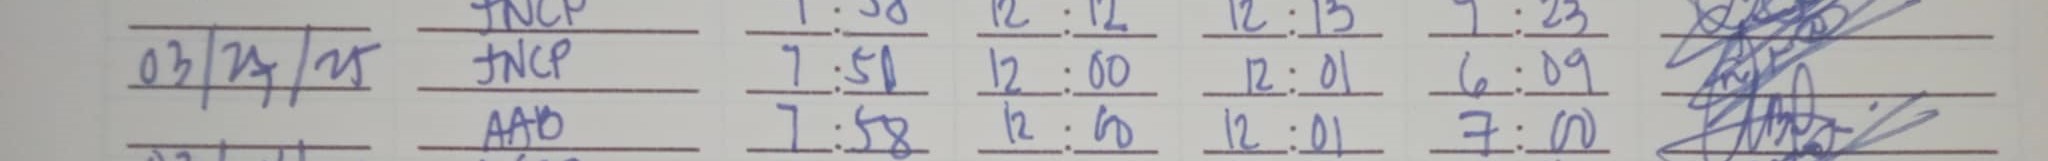 JNCP 7:58 12:12 12:13 7:23
03/27/25 JNCP 7:51 12:00 12:01 6:09
AAB 7:58 12:00 12:01 7:00